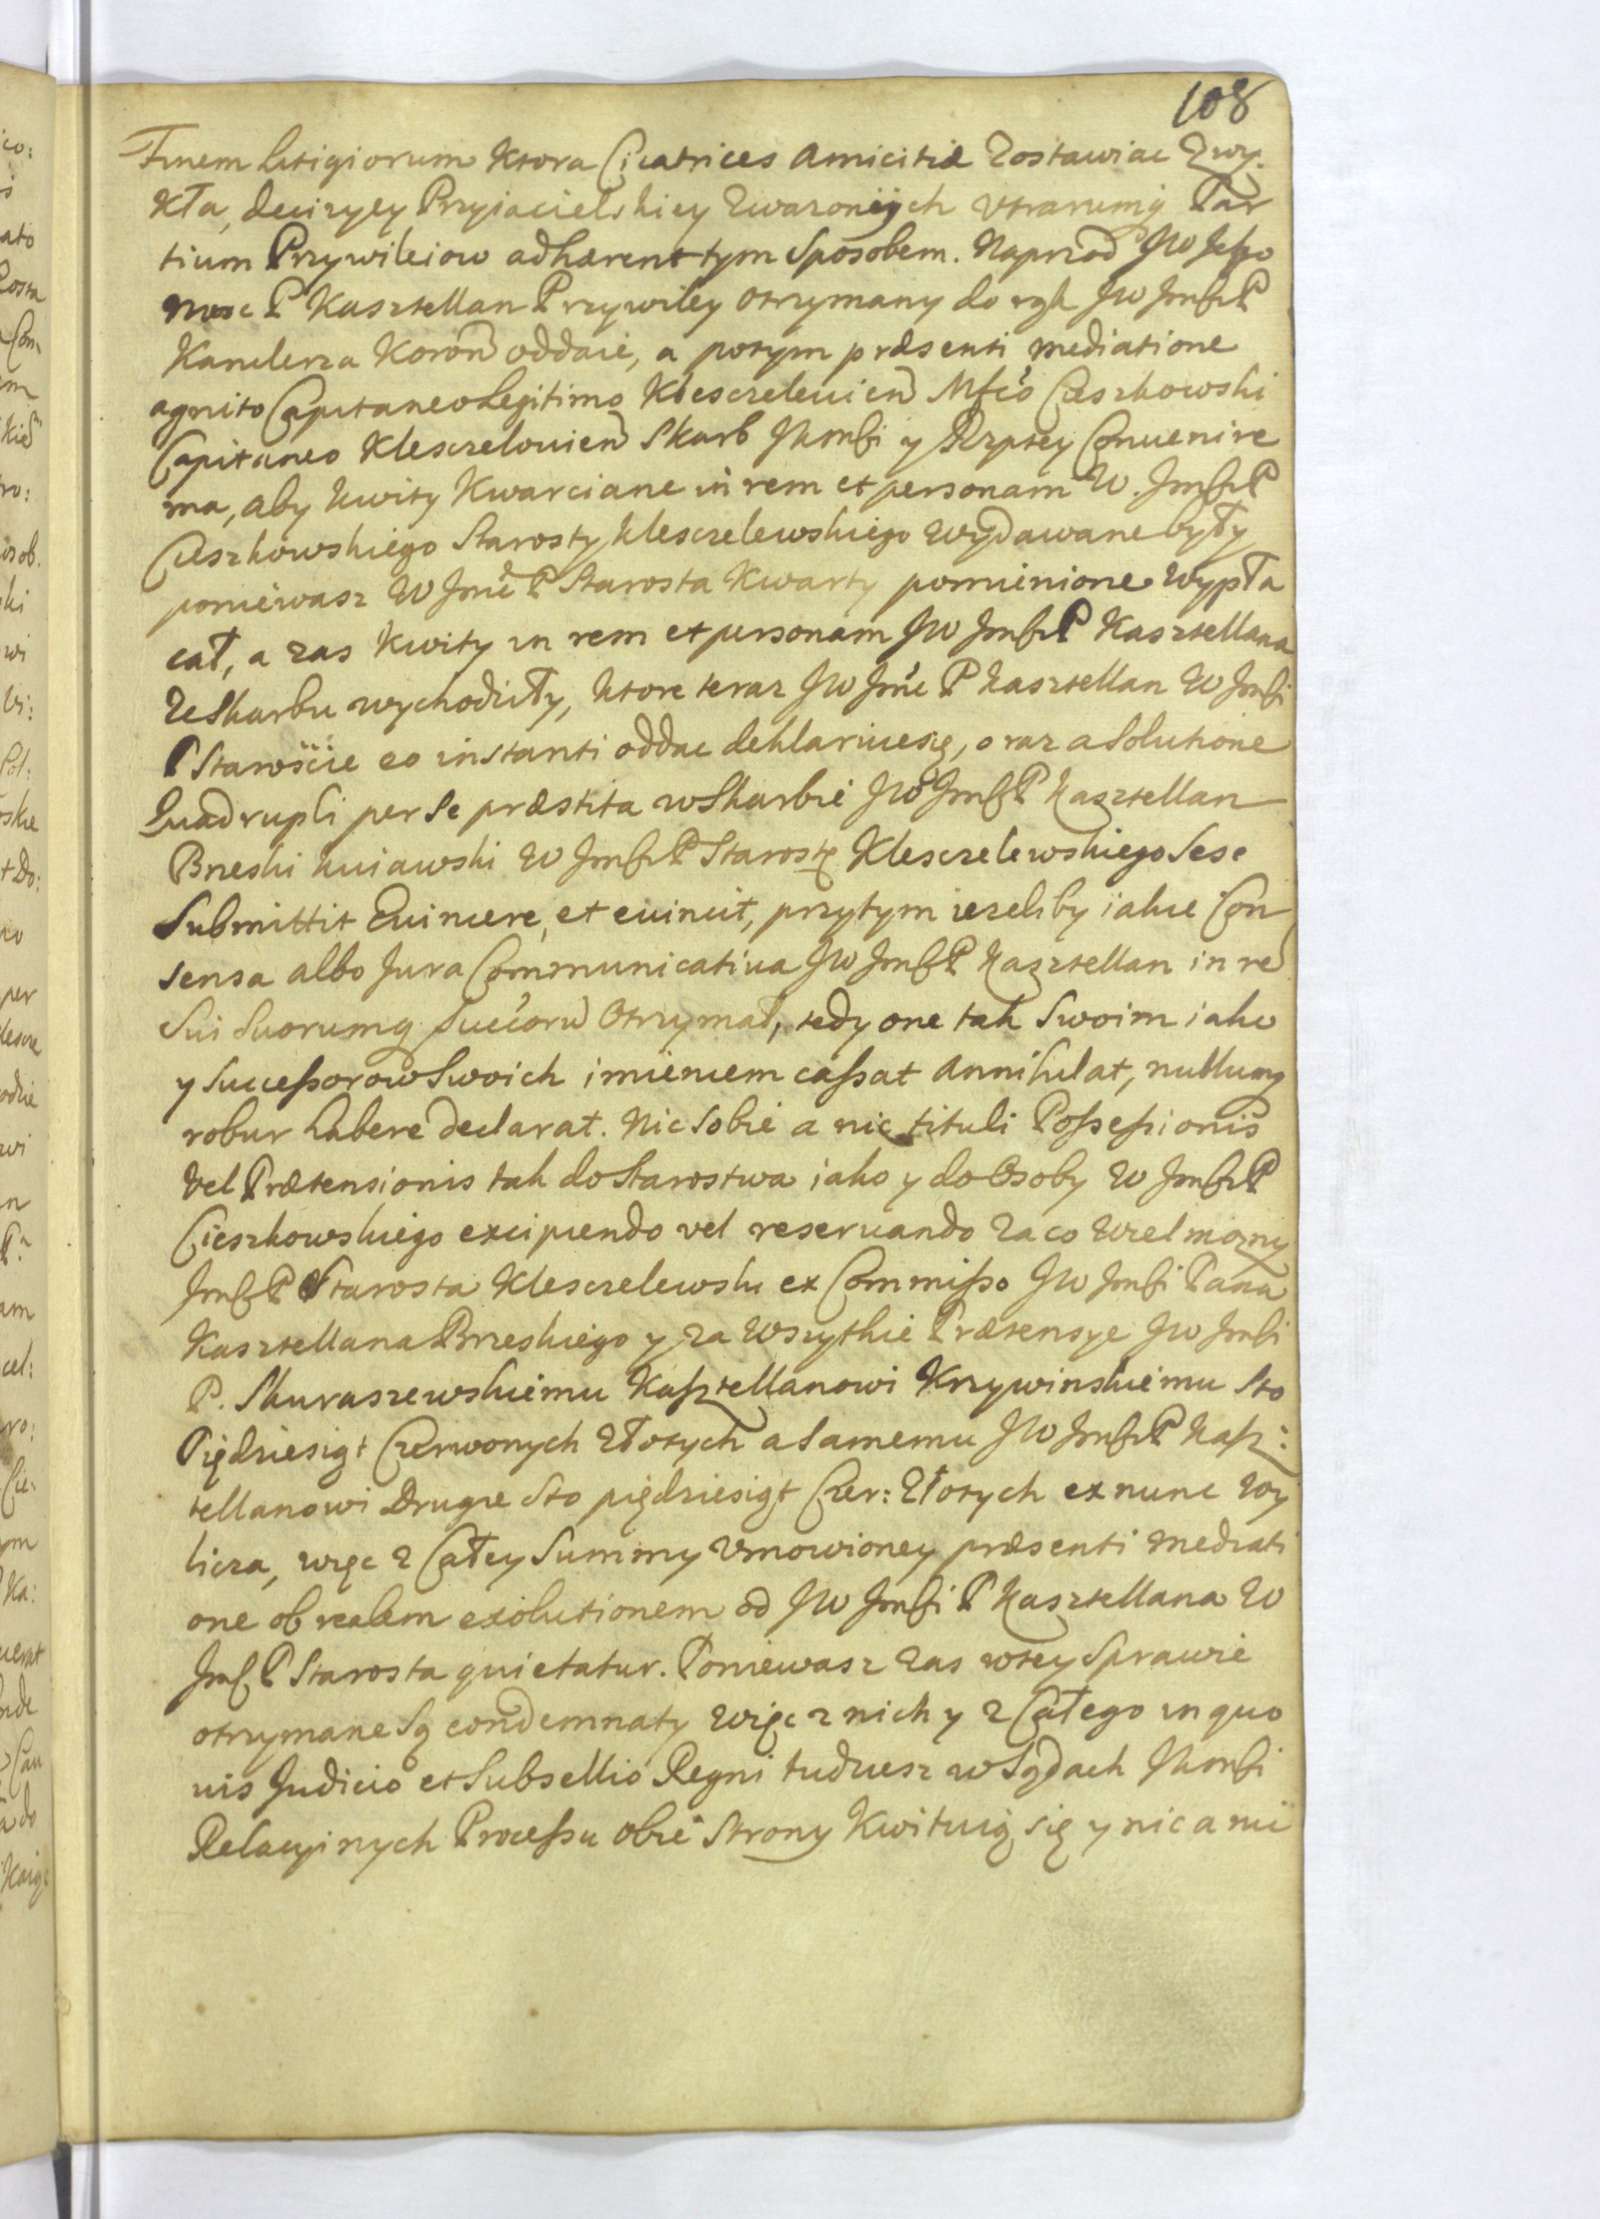 108
Finem Litigiorum Ktora Cicatrices Amicitiæ Zostawiac Zwy-
kła, decizyey Przyiacielskiey zwazonych vtrarumq Par
tium Przywileiow adhærent tym Sposobem. Naprzod JW Jego
mosc P Kasztellan Przywiley otrzymany do rąk JW JmśP
Kanclerza Koron oddaie, a potym præsenti mediatione
agnito Capitaneo Legitimo Klesczelewien Mfco Cieszkowski
Capitaneo Klesczelouien Skarb JKmśi y Rzptey Conuenire
ma, aby kwity Kwarciane in rem et personam W. JmśP
Cieszkowskiego Starosty klesczelewskiego wydawane były
poniewasz W Jmć P Starosta Kwarty pomienione wypła
cał, a zas Kwity in rem et personam JW JmśP Kasztellana
ze Skarbu wychodziły, ktore teraz JW Jmć P Kasztellan W Jmśi
P Starosćie eo instanti oddac deklaruiesię, oraz a Solutione
Quadrupli per Se præstita w Skarbie JW JmśP Kasztellan
Brzeski kuiawski W JmśP Starostę Klesczelewskiego Sese
Submittit Euincere, et euincit, przytym iezeliby iakie Con
sensa albo Jura Communicatiua JW JmśP Kasztellan in re
Sui Suorumq Succorū Otrzymał, tedy one tak Swoim iako
y Successorow Swoich imieniem cassat Annihilat, nullumq
robur habere declarat. Nic Sobie a nic tituli Possessionis
vel Prætensionis tak do Starostwa iako y do Osoby W JmśP
Cieszkowskiego excipiendo vel reseruando Za co Wielmozny
JmśP Starosta Klesczelewski ex Commisso JW Jmśi Pana
Kasztellana Brzeskiego y za wszytkie Prætensye JW Jmśi
P. Skuraszewskiemu Kasztellanowi Krzywinskiemu Sto
Piędziesiąt Czerwonych złotych a Samemu JW JmśP Kasz:
tellanowi Drugie Sto piędziesiąt Czer: Złotych ex nunc wy
licza, więc z Całey Summy Vmowioney præsenti mediati
one ob realem exolutionem od JW Jmśi P Kasztellana W
JmśP Starosta quietatur. Poniewasz zas w tey Sprawie
otrzymane Są condemnaty więc z nich y z Całego in quo
uis Judicio et Subsellio Regni tudziesz w Sądach JKmśi
Relacyinych Processu obie Strony Kwituią się y nic a nic